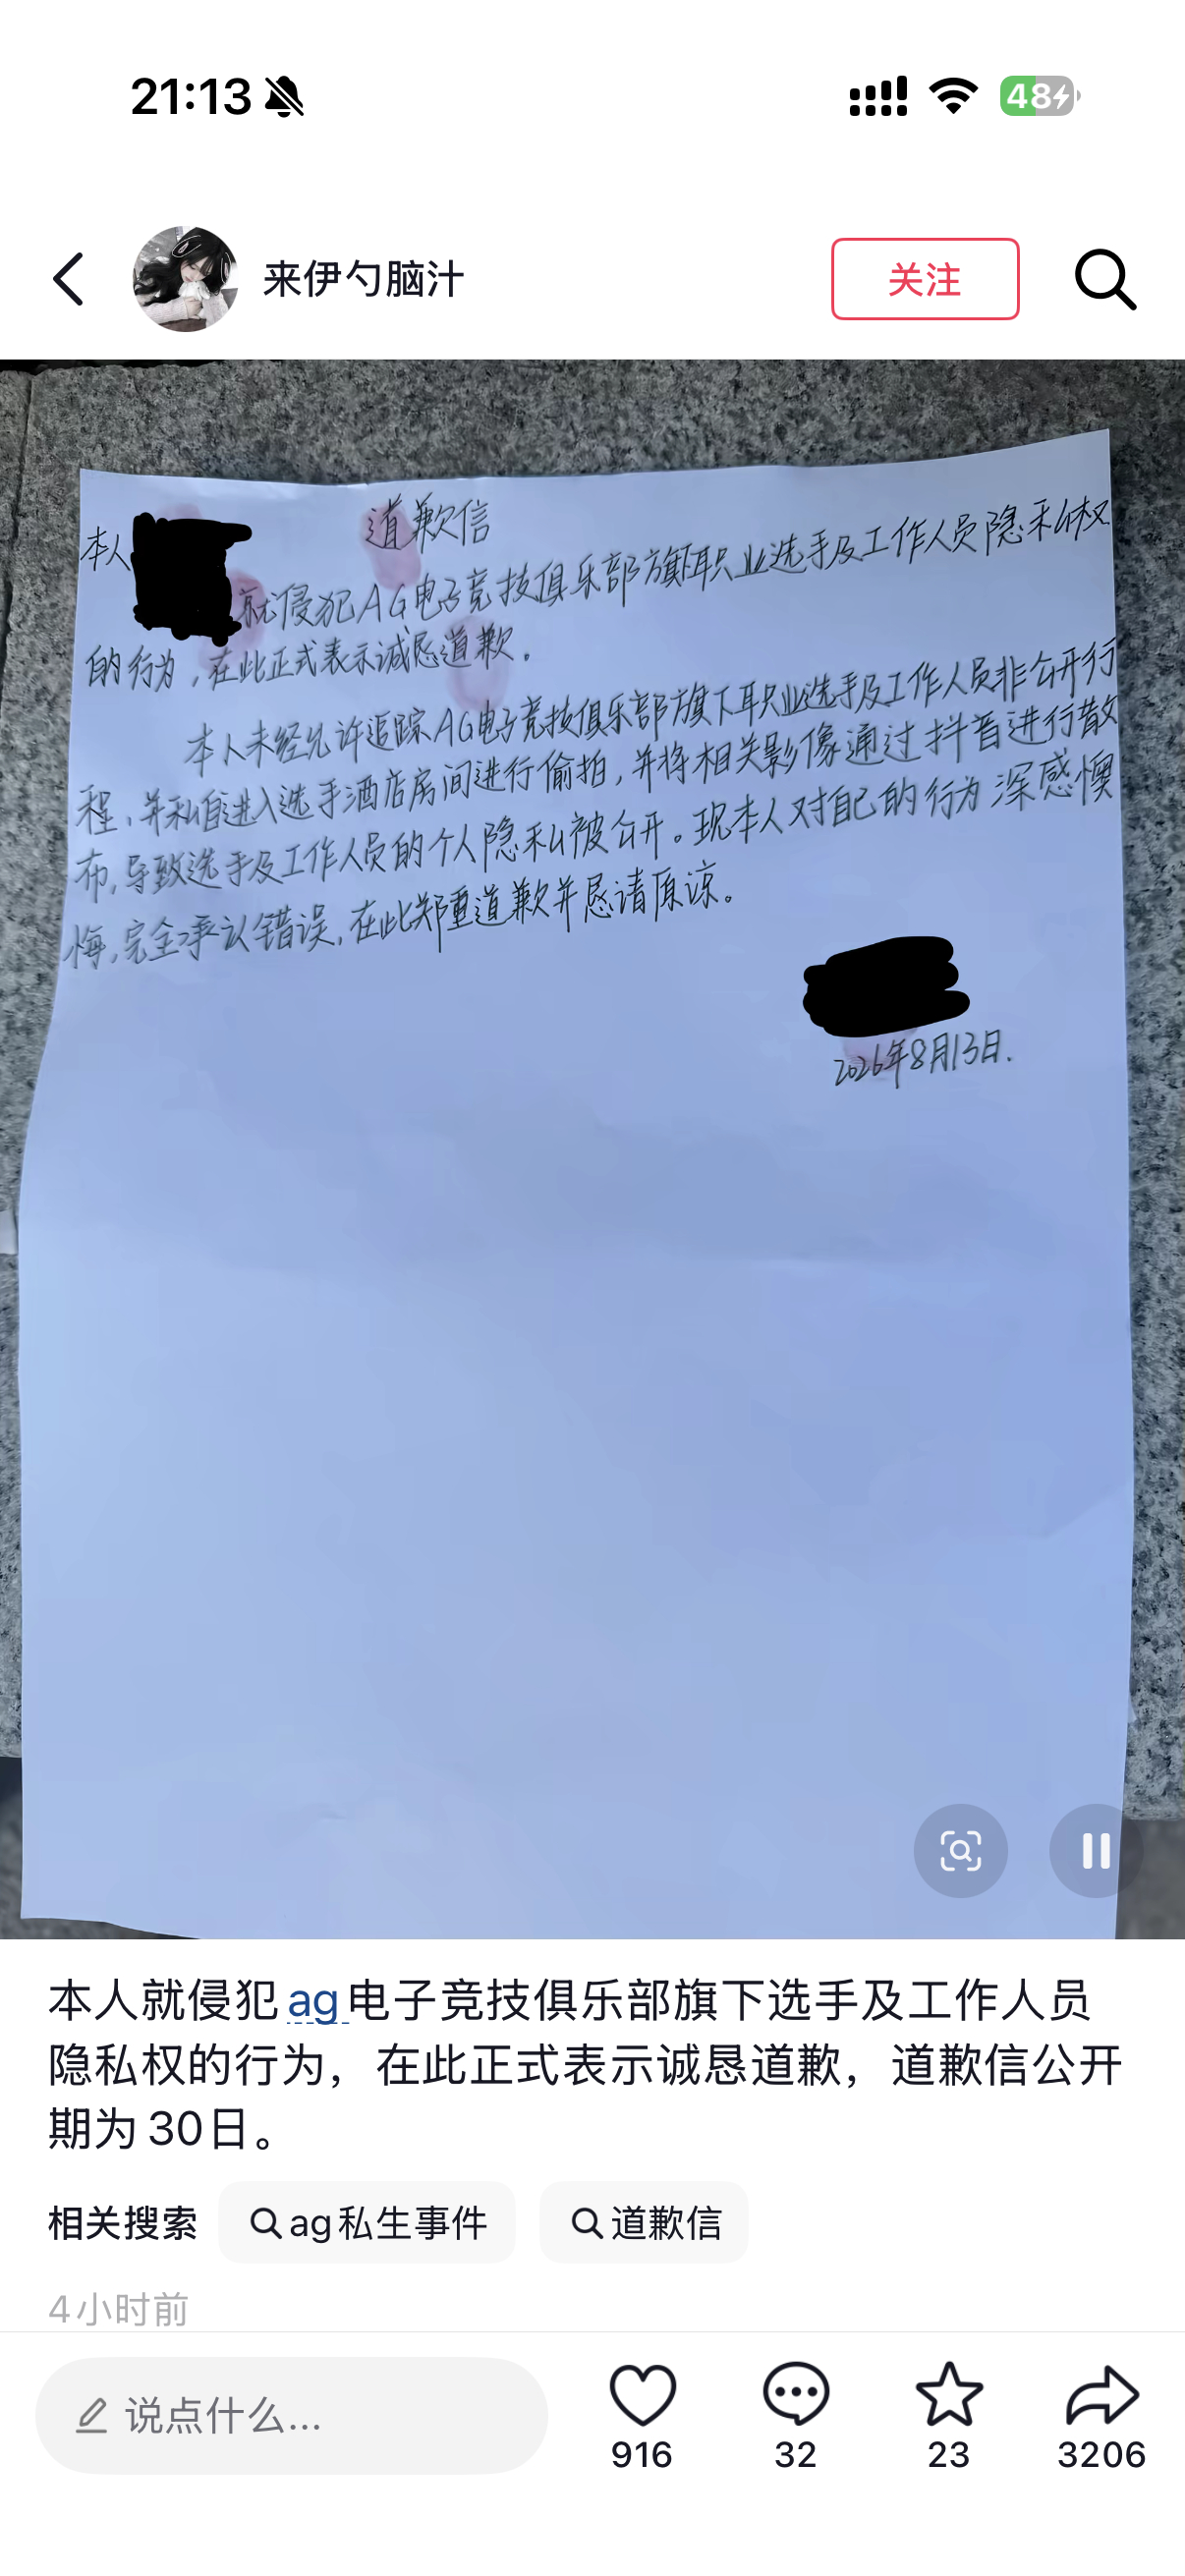 21:13
48
来伊勺脑汁
关注
道歉信
本人
就侵犯AG电子竞技俱乐部旗下职业选手及工作人员隐私权
的行为,在此正式表示诚恳道歉。
本人未经允许追踪AG电子竞技俱乐部旗下职业选手及工作人员非公开行
程、并私自进入选手酒店房间进行偷拍,并将相关影像通过抖音进行散
布,导致选手及工作人员的个人隐私被公开。现本人对自己的行为深感懊
悔,完全承认错误,在此郑重道歉并恳请原谅。
2026年8月13日.
本人就侵犯ag电子竞技俱乐部旗下选手及工作人员
隐私权的行为，在此正式表示诚恳道歉，道歉信公开
期为30日。
相关搜索 ag私生事件 道歉信
4小时前
说点什么...
916 32 23 3206